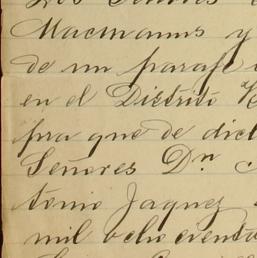 Los Señores
Macmanus y
de un paraje
en el Distrito
pra que de dict
Señores Dn
tonio Jaquez
mil ochocientos